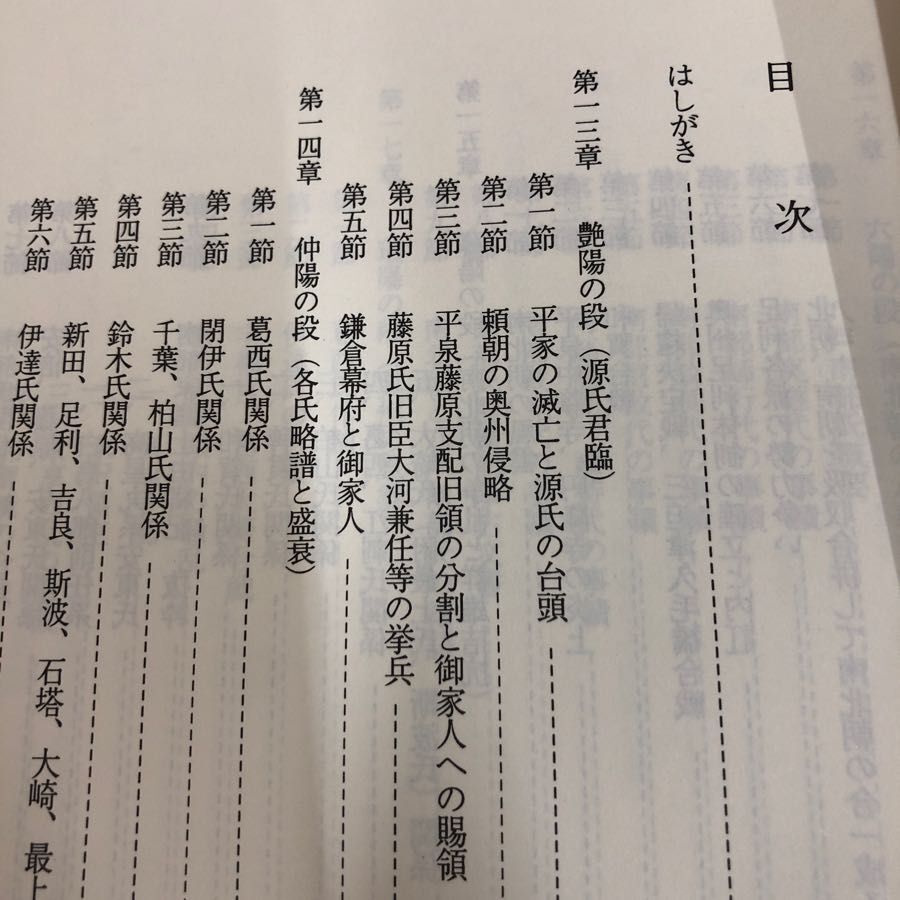 目次
はしがき
第一三章 艶陽の段（源氏君臨）
第一節 平家の滅亡と源氏の台頭
第二節 頼朝の奥州侵略
第三節 平泉藤原支配旧領の分割と御家人への賜領
第四節 藤原氏旧臣大河兼任等の挙兵
第五節 鎌倉幕府と御家人
第一四章 仲陽の段（各氏略譜と盛衰）
第一節 葛西氏関係
第二節 閉伊氏関係
第三節 千葉、柏山氏関係
第四節 鈴木氏関係
第五節 新田、足利、吉良、斯波、石塔、大崎、最上
第六節 伊達氏関係